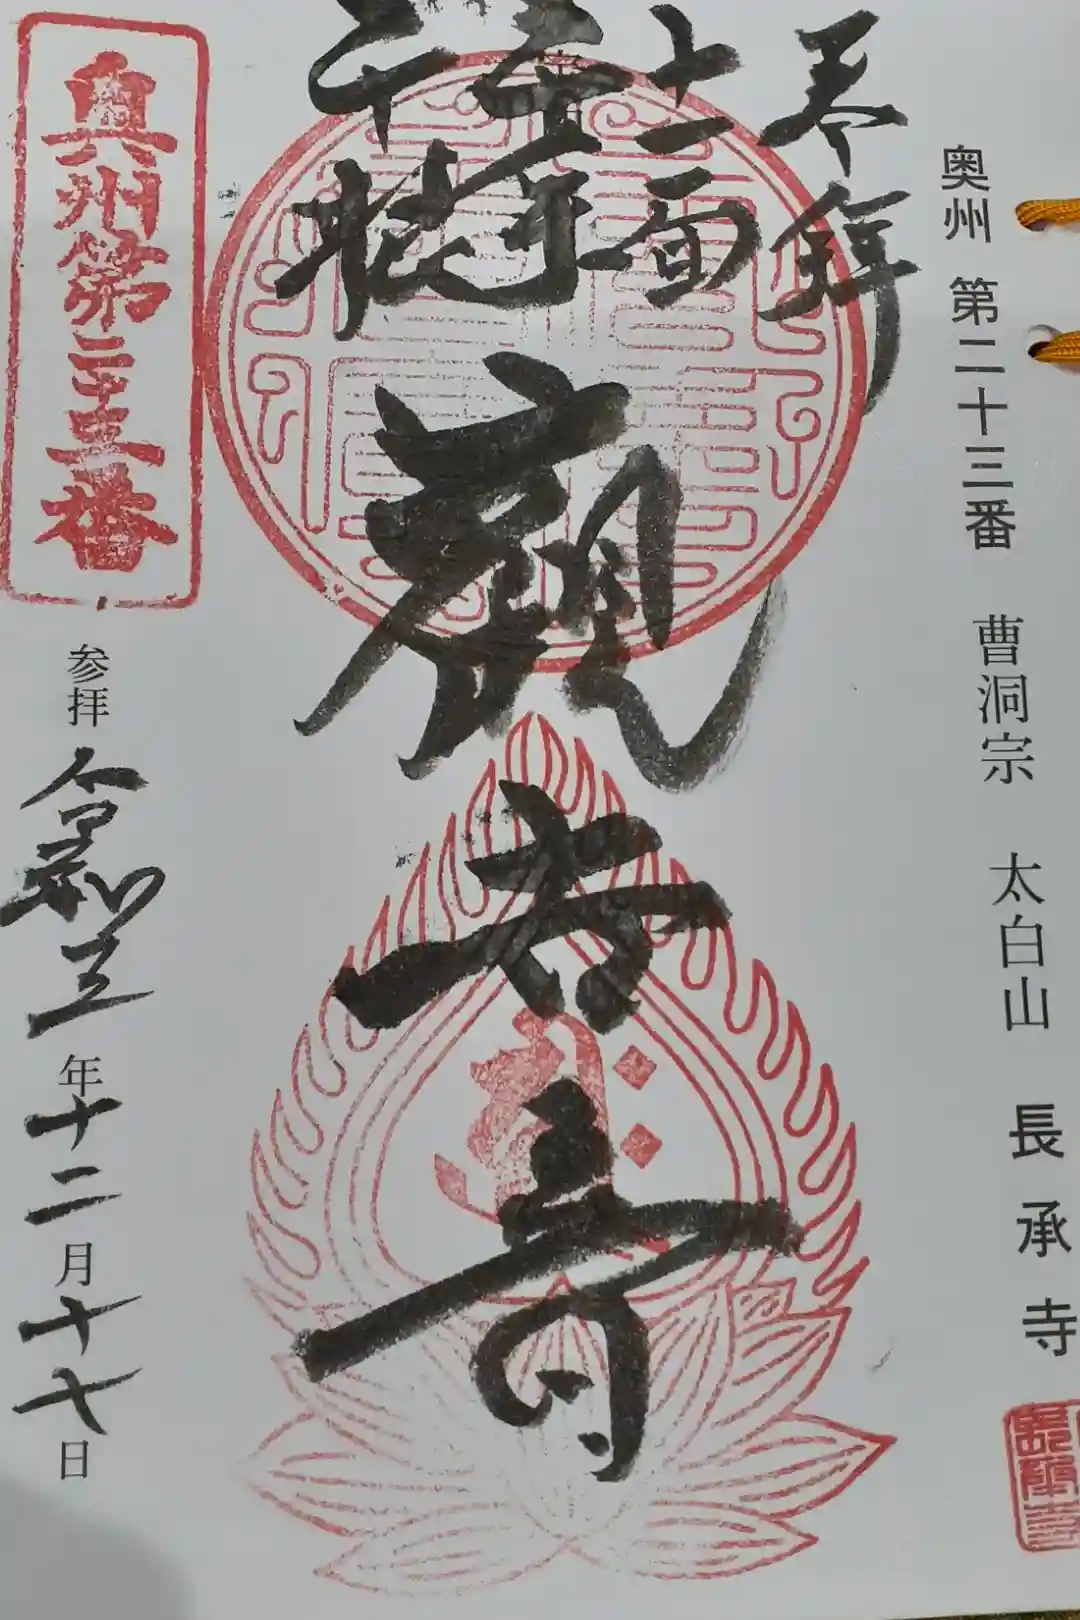 奥州 第二十三番 曹洞宗 太白山 長承寺
奉拝
十一面
千手
観世音
奥州第二十三番
参拝 令和五年十二月十七日